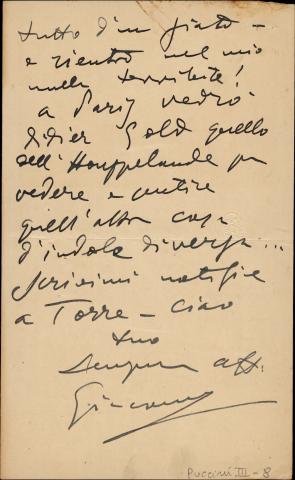 tutto d'un fiato -
e rientro nel mio
nulla terribile!
a Parig vedrò
Didier Gold quello
dell'Houppelande per
vedere e sentire
quell'altra cosa
d'indole diversa...
Scrivimi notizie
a Torre - ciao
tuo
sempre aff.
Giacomo
Puccini III - 8